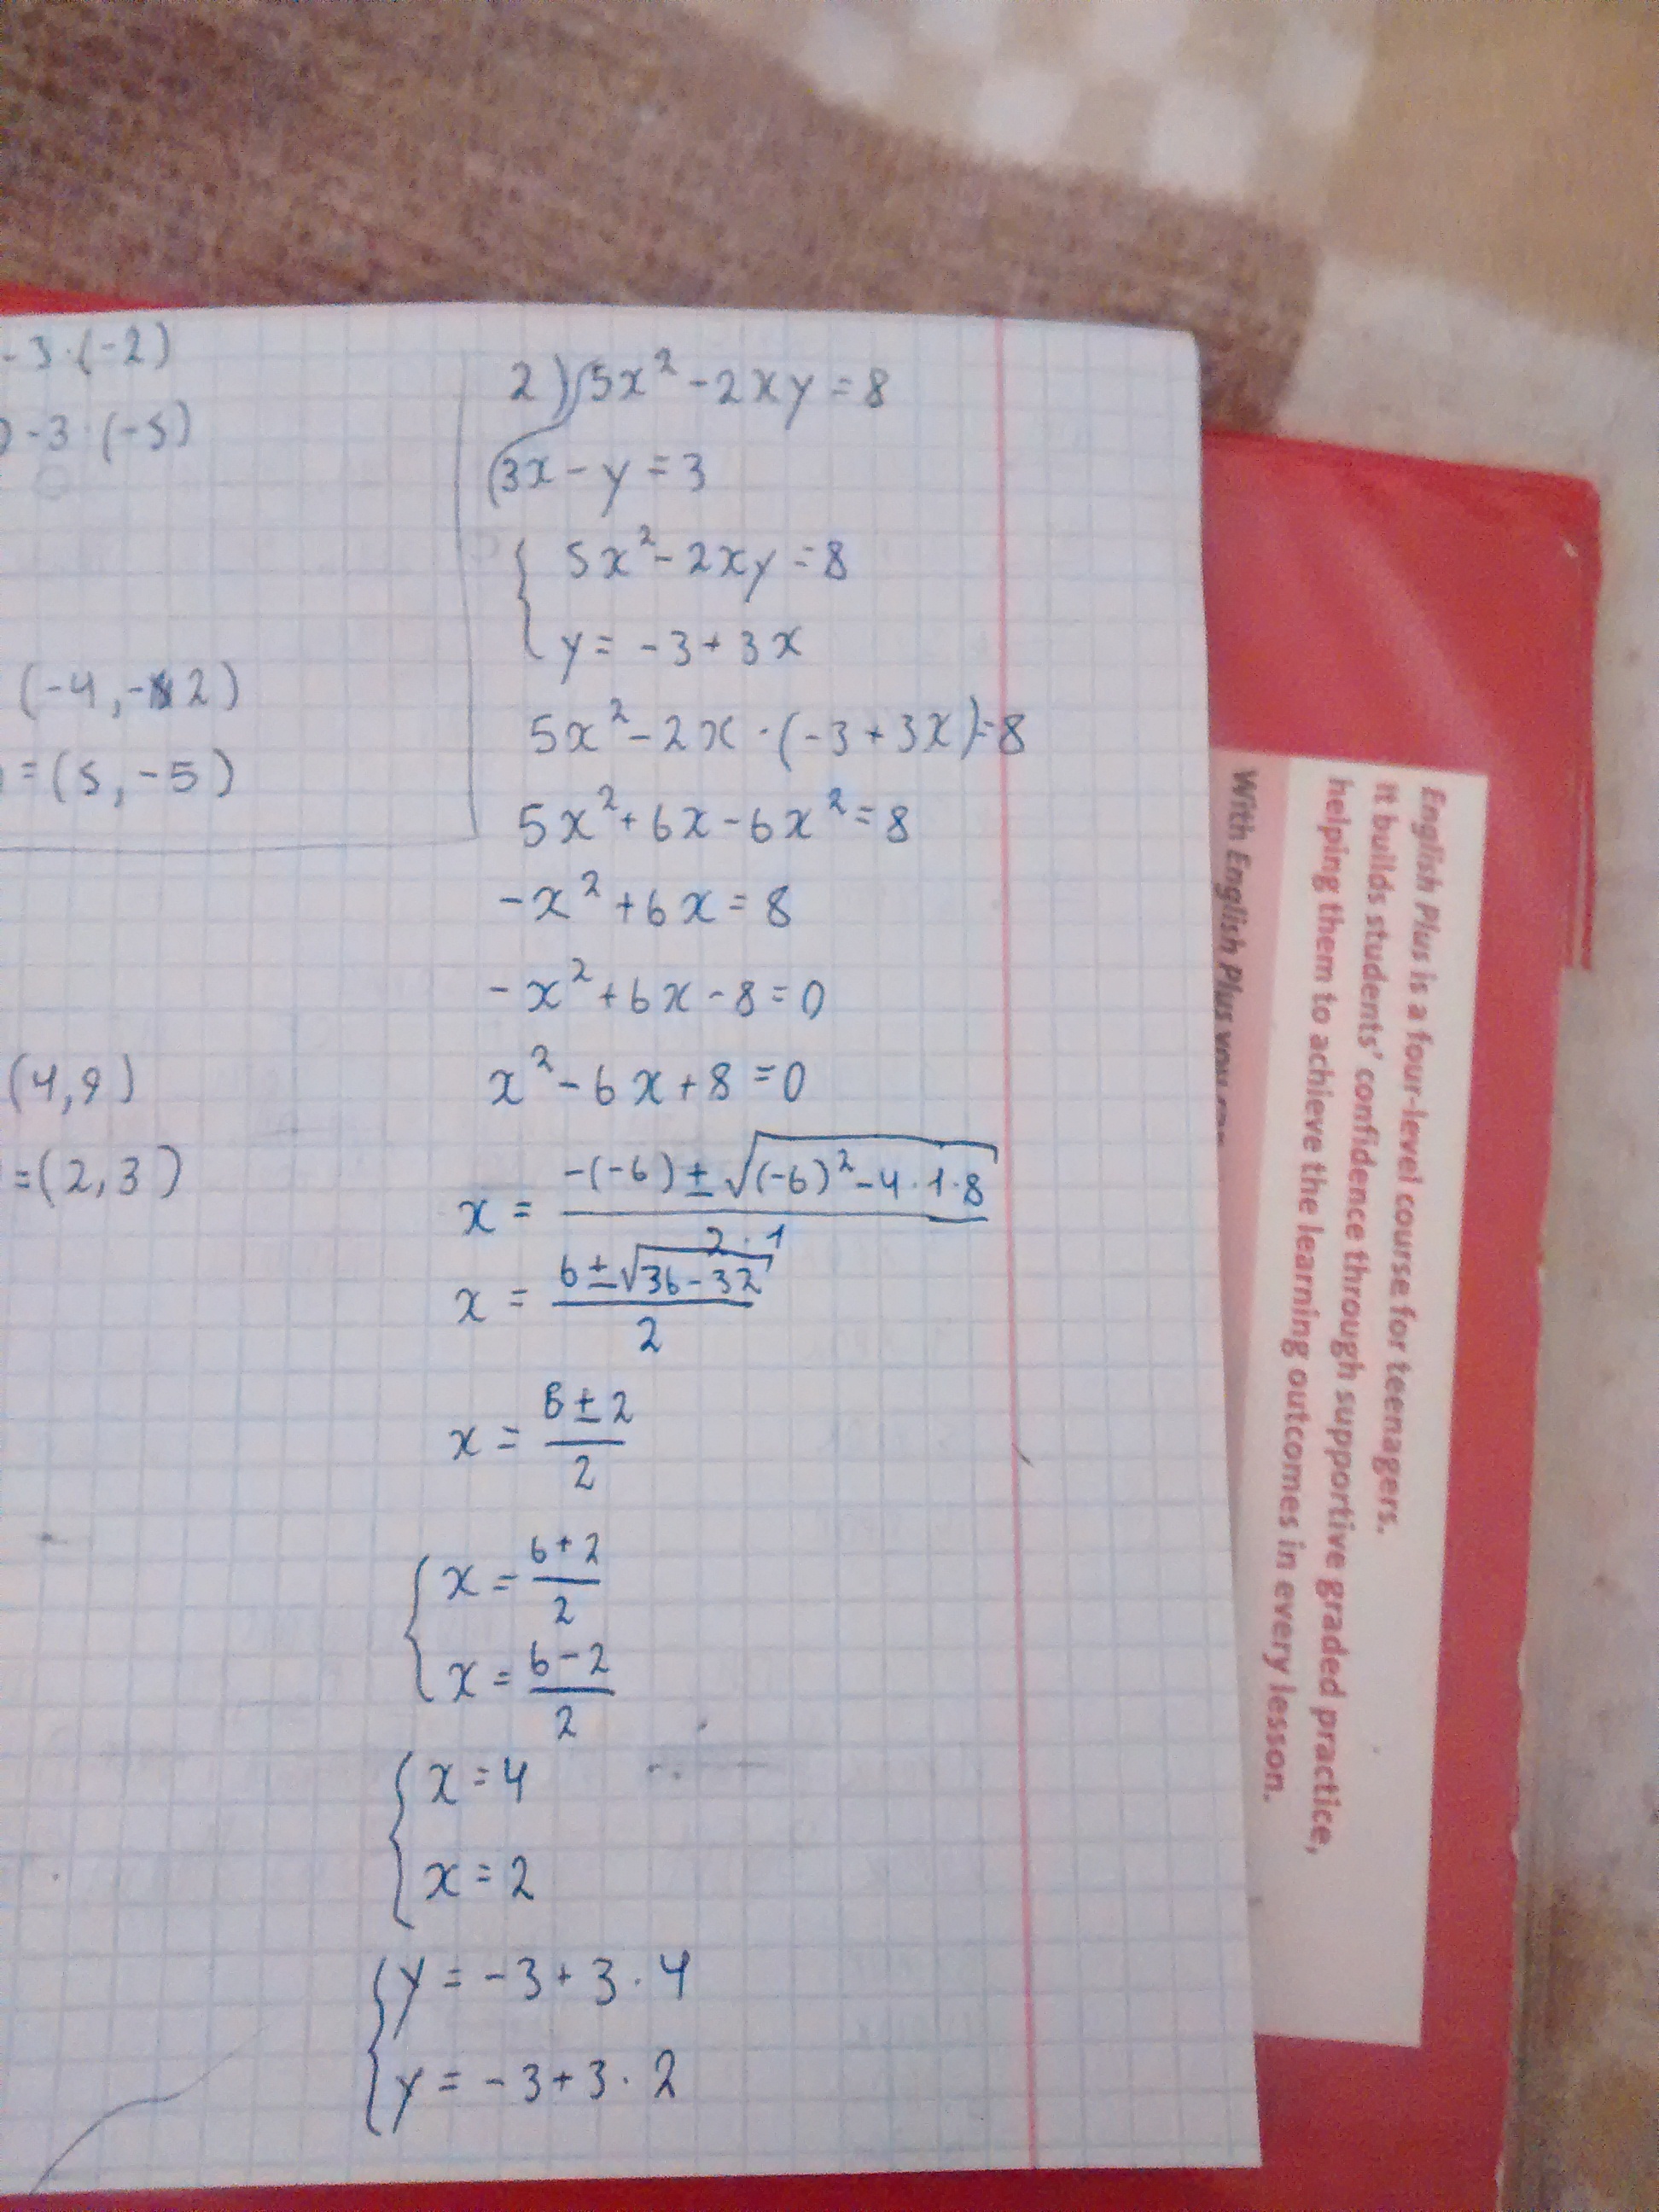 -3·(-2)
)-3·(-5)
(-4,-12)
)=(5,-5)
(4,9)
=(2,3)
2) 5x²-2xy=8
3x-y=3
5x²-2xy=8
y=-3+3x
5x²-2x·(-3+3x)=8
5x²+6x-6x²=8
-x²+6x=8
-x²+6x-8=0
x²-6x+8=0
x=\frac{-(-6)±√((-6)²-4·1·8)}{2·1}
x=\frac{6±√(36-32)}{2}
x=\frac{6±2}{2}
x=\frac{6+2}{2}
x=\frac{6-2}{2}
x=4
x=2
y=-3+3·4
y=-3+3·2
English Plus is a four-level course for teenagers.
It builds students' confidence through supportive graded practice,
helping them to achieve the learning outcomes in every lesson.
With English Plus you